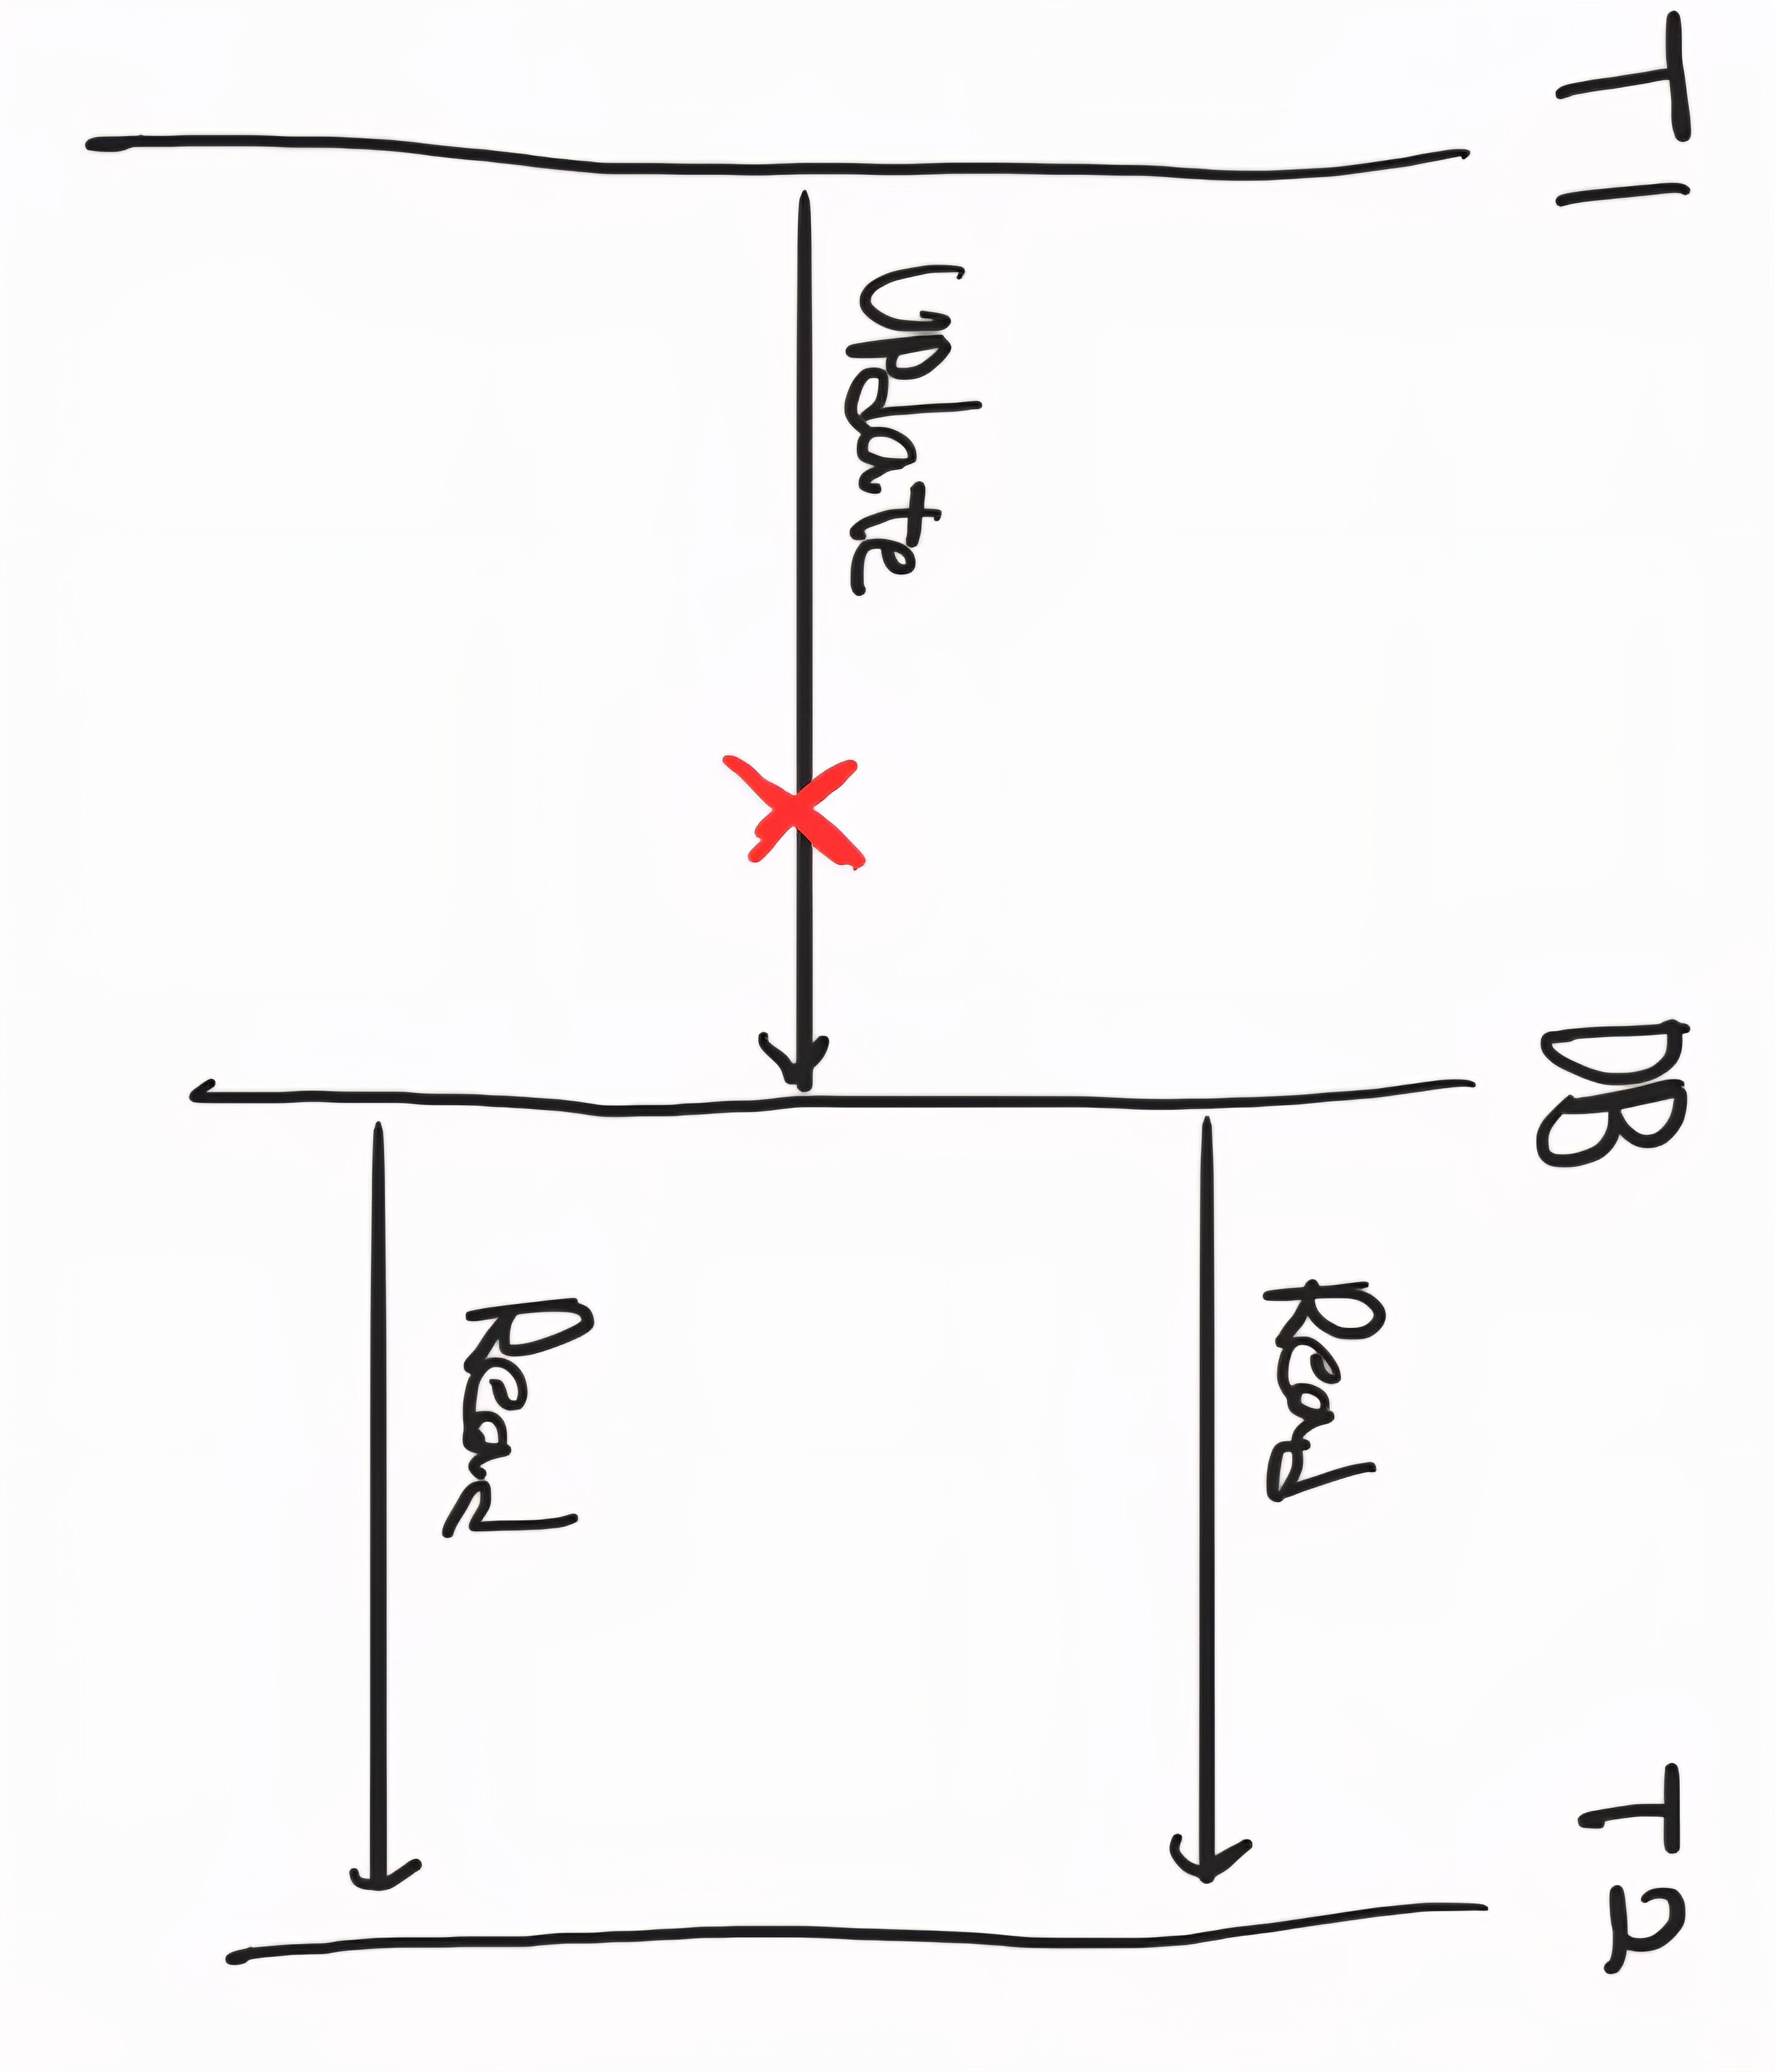 T1 DB T2
Read
Update
Read